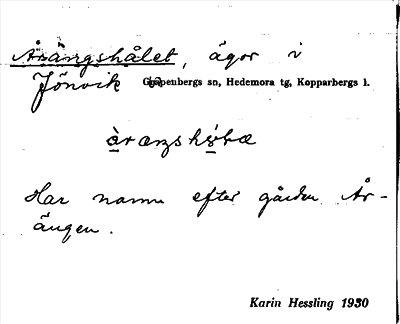 Årängshålet, ägor i
Jönvik Garpenbergs sn, Hedemora tg, Kopparbergs l.
Har namn efter gården År-
ängen.
Karin Hessling 1930